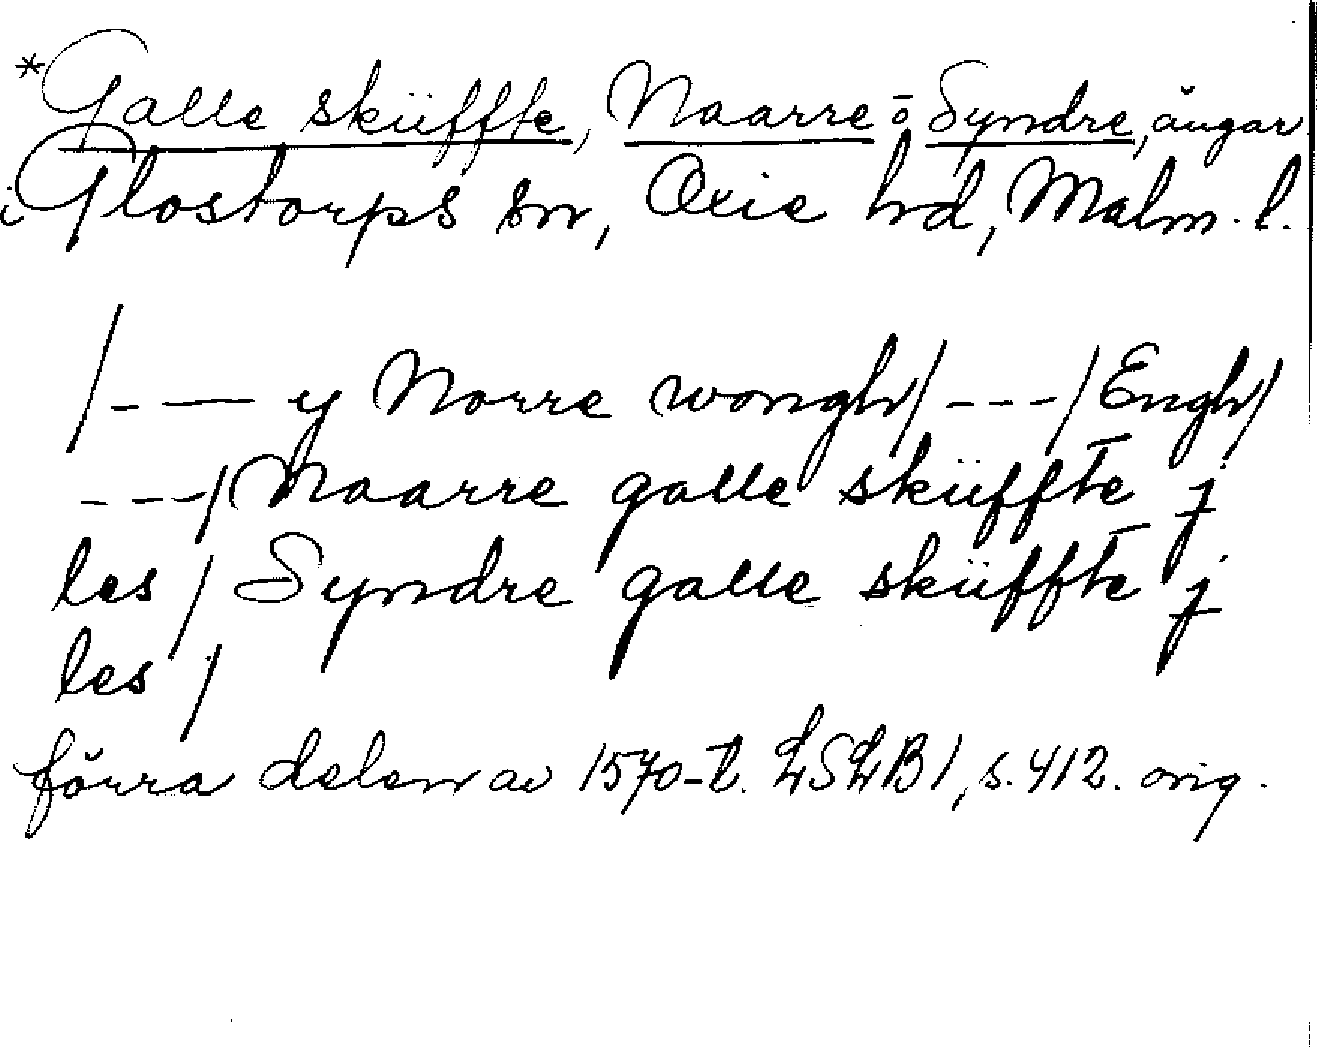 *Galle sküffte, Naarre o Syndre, ängar
i Glostorps sn, Oxie hd, Malm. l.
/- — — y Norre wongh/ - - -/Engh/
- - -/Naarre galle sküffte j
les / Syndre galle sküffte j
les /
förra delen av 1570-t. LSLB 1, s. 412. orig.